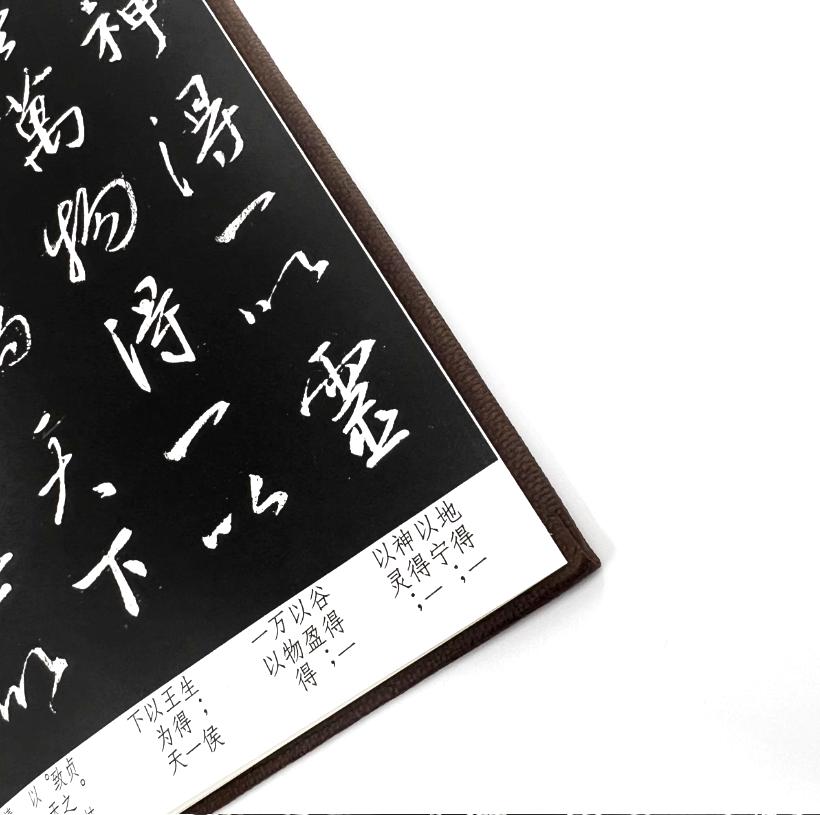 神得一以靈
萬物得一以
為天下
一以
地得一
以宁；
神得一
以灵；
谷得一
以盈；
万物得
一以
生；侯
王得一
以为天
下
贞。
致之
。天
以